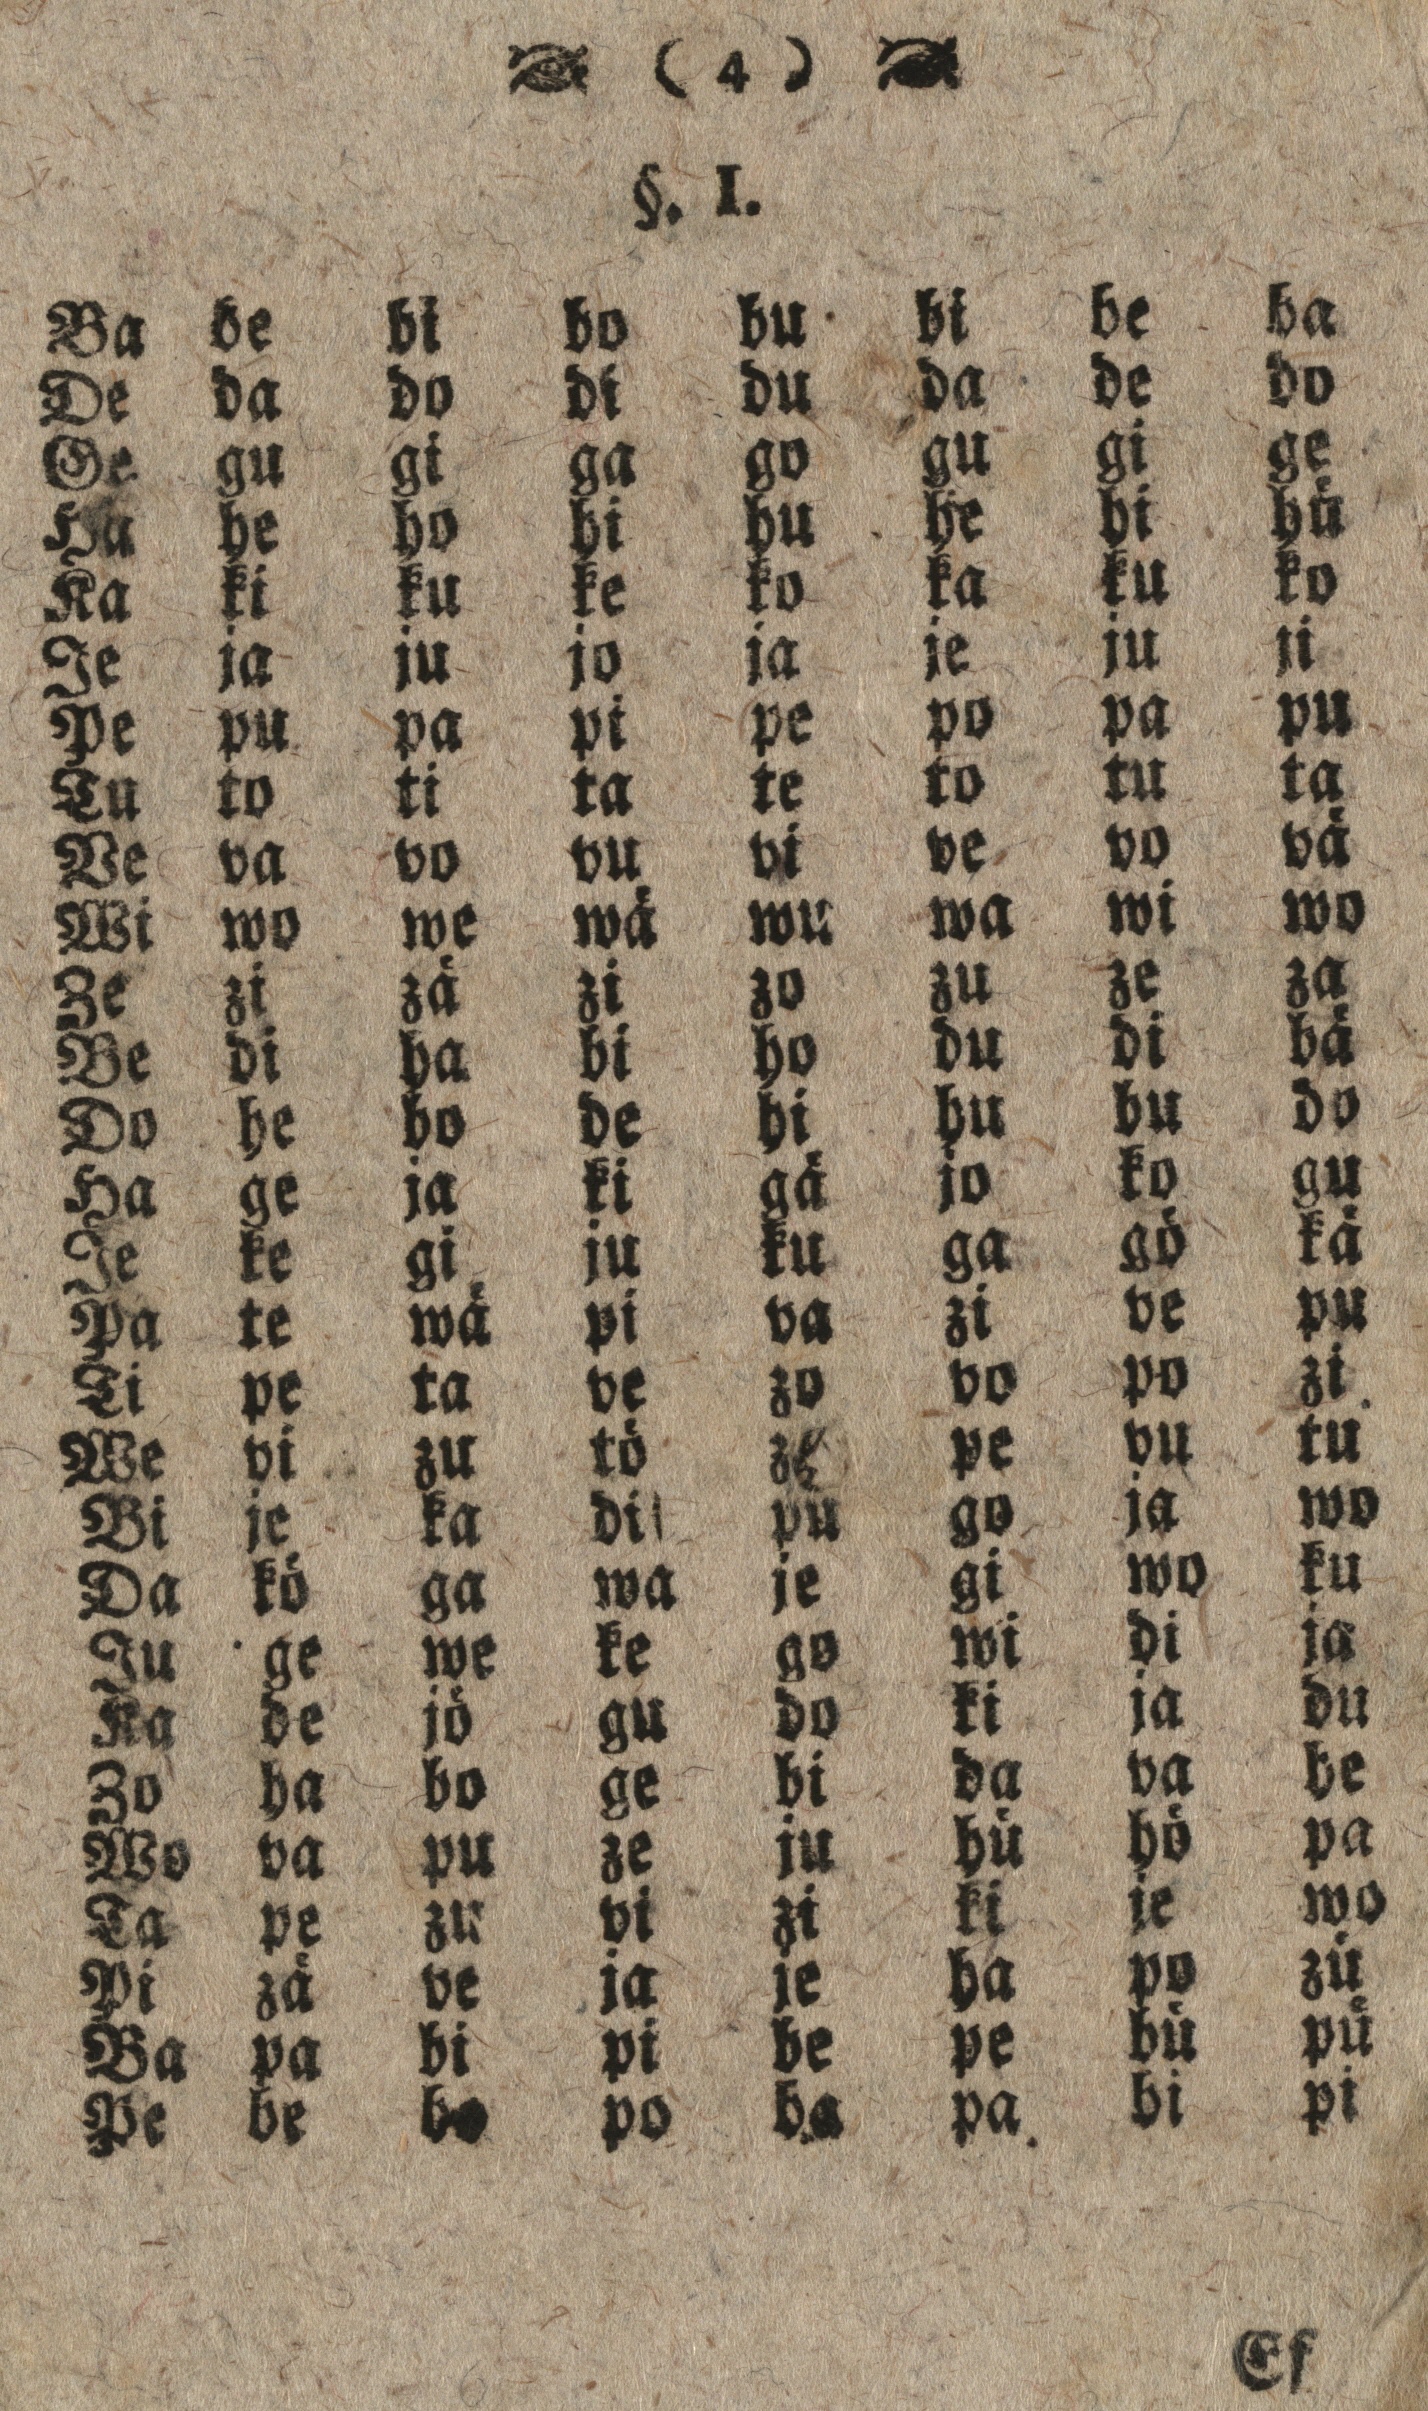 ( 4 )
§. I.
Ba be bi bo bu bi be ba
De da do di du da de do
Ge gu gi ga go gu gi ge
Ha he ho hi hu he hi hü
Ka ki ku ke ko ka ku ko
Je ja ju jo ja je ju ji
Pe pu pa pi pe po pa pu
Tu to ti ta te to tu ta
Ve va vo vu vi ve vo vä
Wi wo we wä wu wa wi wo
Ze zi zä zi zo zu ze za
Be di ha bi ho du di bä
Do he bo de hi hu bu do
Ha ge ja ki gä jo ko gu
Je ke gi ju ku ga gö kä
Pa te wä pi va zi ve pu
Ti pe ta ve zo vo po zi
We vi zu tö ze pe vu tu
Bi je ka di pu go ja wo
Da kö ga wa je gi wo ku
Ju ge we ke go wi di ja
Ka de jö gu do ki ja du
Zo ha bo ge bi da va he
Wo va pu ze ju hü hö pa
Ta pe zu vi zi ki je wo
Pi zä ve ja je ha po zü
Ba pa bi pi be pe bü pü
Pe be bo po ba pa bi pi
Ef